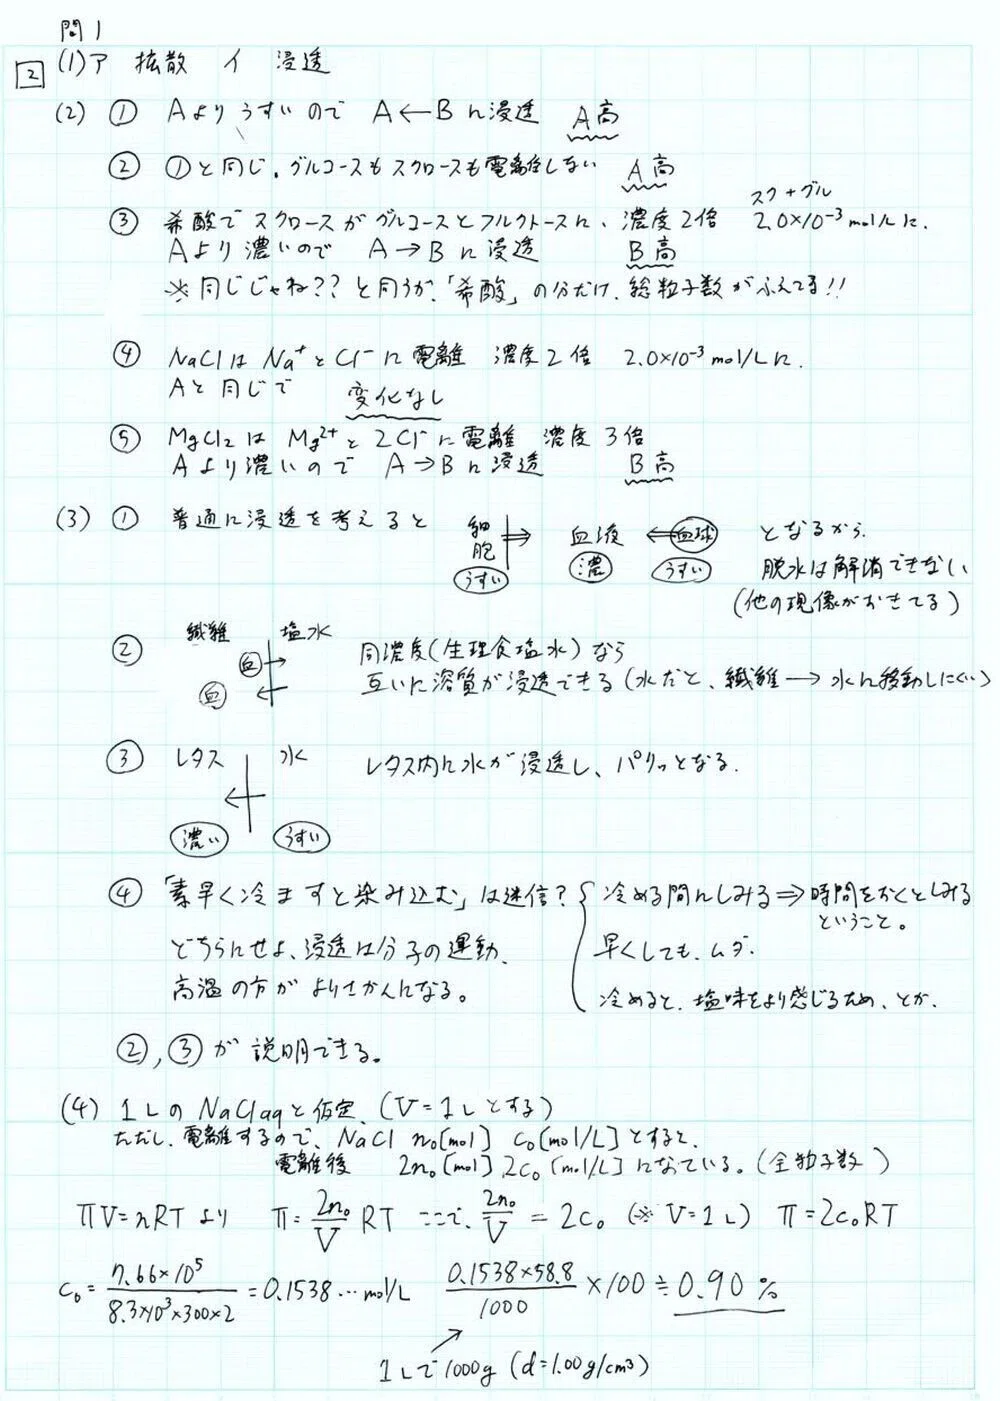 問1
2 (1)ア 拡散 イ 浸透
(2) ① Aよりうすいので A←Bに浸透 A高
② ①と同じ。グルコースもスクロースも電離しない A高
スク+グル
③ 希酸でスクロースがグルコースとフルクトースに、濃度2倍 2.0×10⁻³mol/Lに.
Aより濃いので A→Bに浸透 B高
※同じじゃね??と思うが、「希酸」の分だけ、総粒子数がふえてる!!
④ NaClはNa⁺とCl⁻に電離 濃度2倍 2.0×10⁻³mol/Lに.
Aと同じで 変化なし
⑤ MgCl₂は Mg²⁺と2Cl⁻に電離 濃度3倍
Aより濃いので A→Bに浸透 B高
(3) ① 普通に浸透を考えると 細胞 ⇒ 血液 ← 血球 となるから.
うすい 濃 うすい 脱水は解消できない
(他の現像がおきてる)
② 繊維 塩水 同濃度(生理食塩水)なら
血 → 血 ← 互いに溶質が浸透できる(水だと、繊維→水に移動しにくい)
③ レタス 水 レタス内に水が浸透し、パリッとなる.
←
濃い うすい
④ 「素早く冷ますと染み込む」は迷信? 冷める間にしみる⇒時間をおくとしみる
ということ。
どちらにせよ、浸透は分子の運動、 早くしても、ムダ.
高温の方がよりさかんになる。 冷めると、塩味をより感じるため、とか.
②,③が説明できる。
(4) 1LのNaClaqと仮定、(V=1Lとする)
ただし、電離するので、NaCl n₀[mol] c₀[mol/L]とすると、
電離後 2n₀[mol] 2c₀[mol/L]になっている。(全粒子数)
ΠV=nRTより Π=2n₀/V RT ここで、2n₀/V = 2c₀ (※V=1L) Π=2c₀RT
c₀ = 7.66×10⁵/8.3×10³×300×2 = 0.1538…mol/L 0.1538×58.8/1000 ×100≒0.90%
1Lで1000g (d=1.00g/cm³)